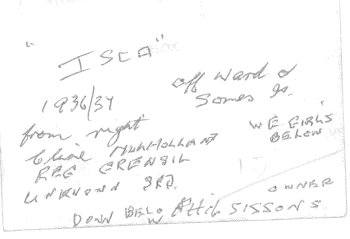 "ISCA"
off Ward &
Somes Is.
1936/37
from right
Clive MULHOLLAND
WE GIRLS
BELOW
REG GRENSIL
UNKNOWN 3RD.
OWNER
DOWN BELOW Attie SISSONS